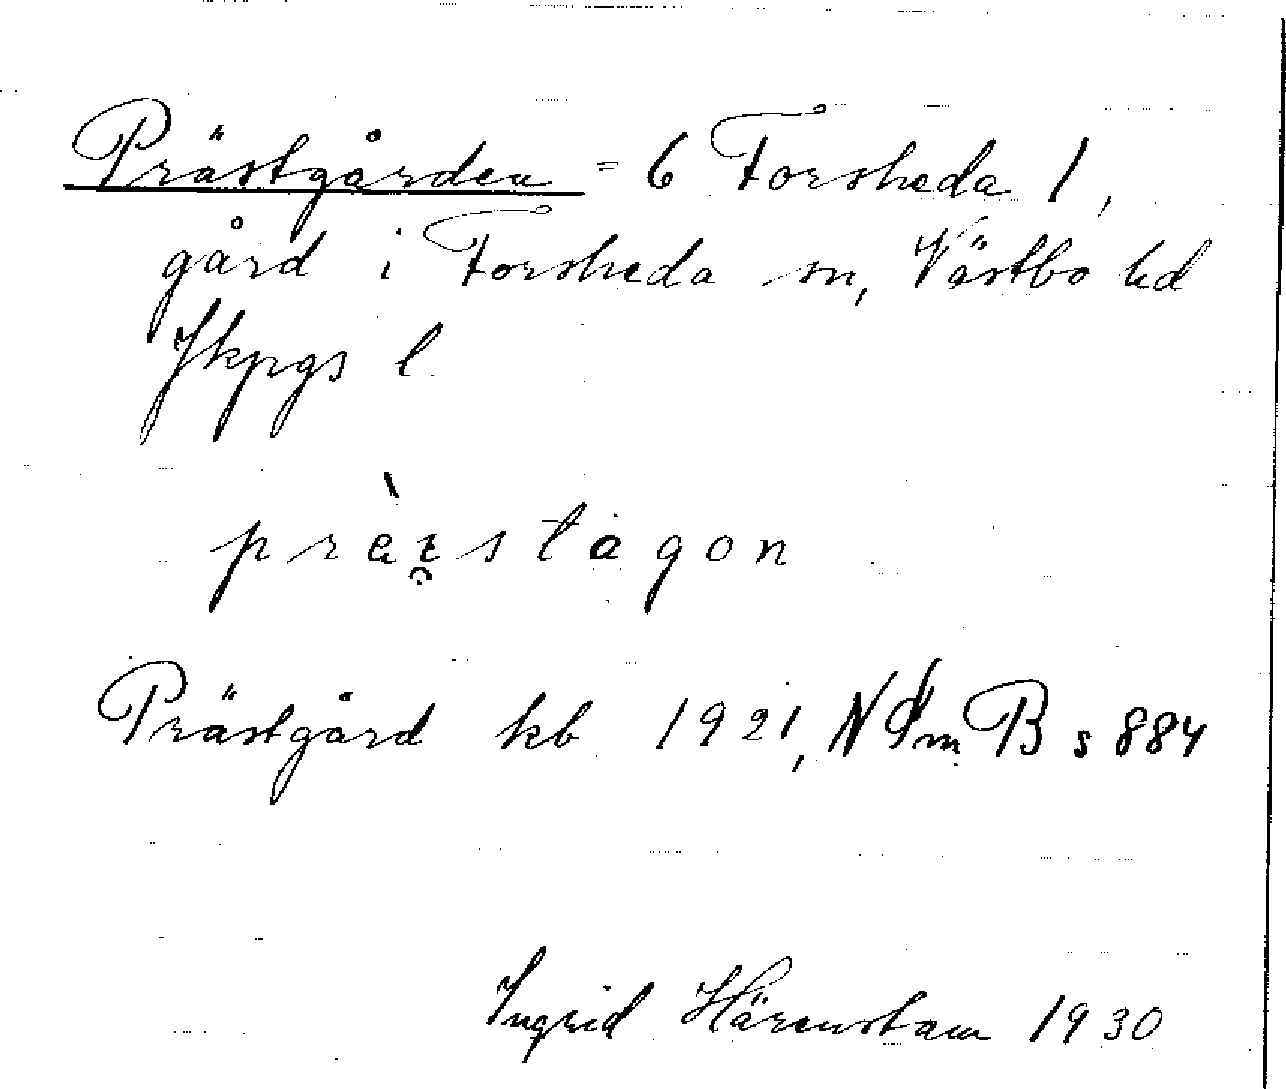 Prästgården = 6 Forsheda 1,
gård i Forsheda sn, Västbo hd
Jkpgs l
prä̀i̯stagon
Prästgård kb 1921, B s 884
Ingrid Härenstam 1930